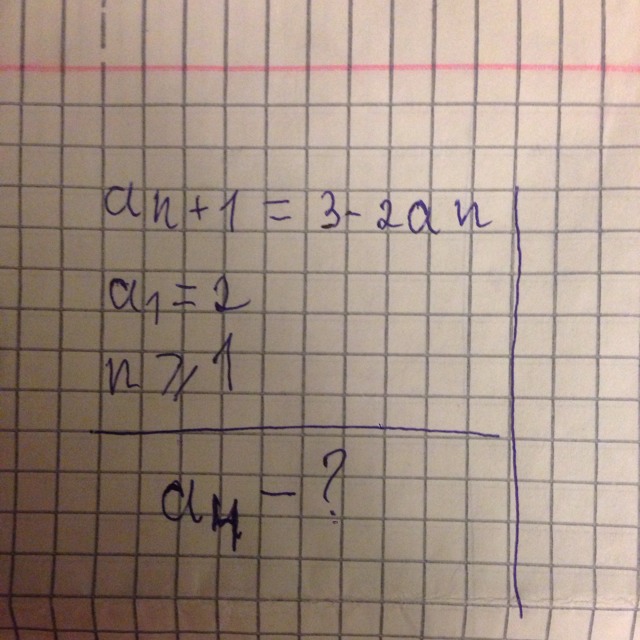 an+1 = 3-2an
a₁ = 2
n ⩾ 1
a₄ - ?